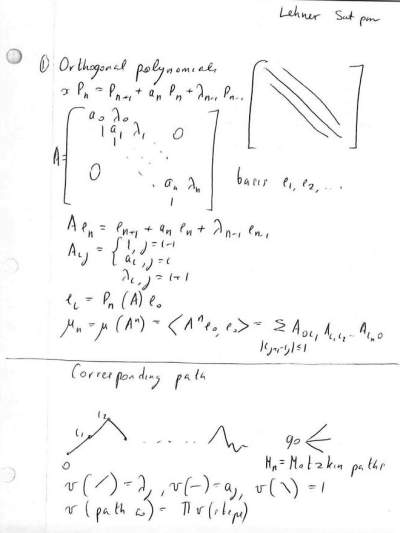 Lehner Sat pm
① Orthogonal polynomials
x Pn = Pn+1 + an Pn + λn-1 Pn-1
A = [ a0 λ0
1 a1 λ1 0
1
0
an λn
1 ]
basis e1, e2, ...
A en = en+1 + an en + λn-1 en-1
Aij = { 1, j=i-1
ai, j=i
λi, j=i+1
ei = Pn (A) e0
μn = μ (A^n) = <A^n e0, e0> = Σ A0i1 Ai1i2 ... Ain0
|ij+1-ij|≤1
Corresponding path
i1 i2
0 ......
go
Mn = Motzkin paths
v(/) = λj, v(–) = aj, v(\) = 1
v (path ω) = Π v(steps)